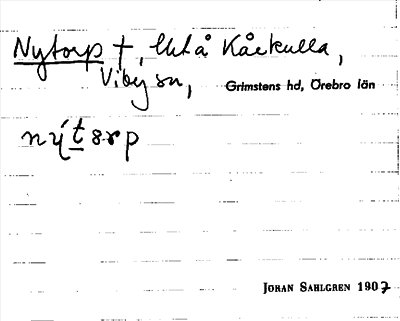 Nytorp †, Utå Kåekulla,
Viby sn, Grimstens hd, Örebro län
Johan Sahlgren 1907